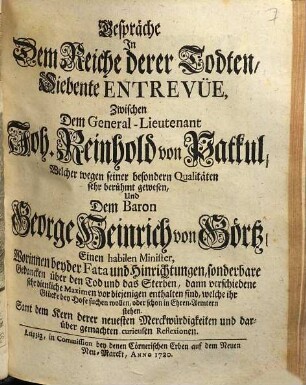 7
Gespräche
In
Dem Reiche derer Todten/
Siebente ENTREVÜE,
Zwischen
Dem General-Lieutenant
Joh. Reinhold von Patkul,
Welcher wegen seiner besondern Qualitäten
sehr berühmt gewesen,
Und
Dem Baron
George Heinrich von Görtz/
Einen habilen Minister,
Worinnen beyder Fata und Hinrichtungen, sonderbare
Gedancken über den Tod und das Sterben, dann verschiedene
sehr dienliche Maximen vor diejenigen enthalten sind, welche ihr
Glücke bey Hofe suchen wollen, oder schon in Ehren-Aemtern
stehen.
Samt dem Kern derer neuesten Merckwürdigkeiten und dar-
über gemachten curieusen Reflexionen.
Leipzig, in Commission bey denen Cörnerischen Erben auf dem Neuen
Neu-Marckt, ANNO 1720.